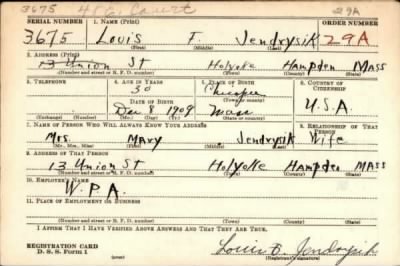 3675 29A
SERIAL NUMBER 1. NAME (Print) ORDER NUMBER
3675 Louis F. Jendrysik 29A
(First) (Middle) (Last)
2. ADDRESS (Print)
13 Union St Holyoke Hampden MASS
(Number and street or R. F. D. number) (Town) (County) (State)
3. TELEPHONE 4. AGE IN YEARS 5. PLACE OF BIRTH 6. COUNTRY OF CITIZENSHIP
30 Chicopee
(Town or county)
DATE OF BIRTH
Dec 8 1909 Mass U.S.A.
(Exchange) (Number) (Mo.) (Day) (Yr.) (State or country)
7. NAME OF PERSON WHO WILL ALWAYS KNOW YOUR ADDRESS 8. RELATIONSHIP OF THAT PERSON
Mrs. Mary Jendrysik Wife
(Mr., Mrs., Miss) (First) (Middle) (Last)
9. ADDRESS OF THAT PERSON
13 Union St Holyoke Hampden MASS
(Number and street or R. F. D. number) (Town) (County) (State)
10. EMPLOYER'S NAME
W.P.A.
11. PLACE OF EMPLOYMENT OR BUSINESS
(Number and street or R. F. D. number) (Town) (County) (State)
I AFFIRM THAT I HAVE VERIFIED ABOVE ANSWERS AND THAT THEY ARE TRUE.
REGISTRATION CARD
D. S. S. Form 1 Louis F. Jendrysik
(Registrant's signature)